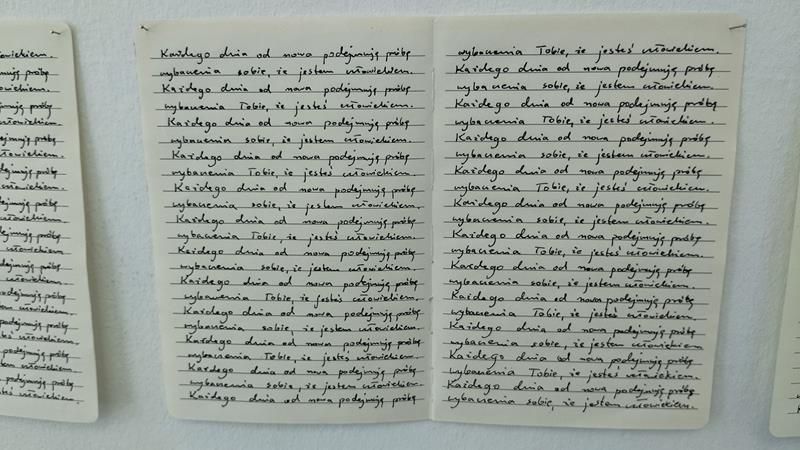 Każdego dnia od nowa podejmuję próbę
wybaczenia sobie, że jestem człowiekiem.
Każdego dnia od nowa podejmuję próbę
wybaczenia Tobie, że jesteś człowiekiem.
Każdego dnia od nowa podejmuję próbę
wybaczenia sobie, że jestem człowiekiem.
Każdego dnia od nowa podejmuję próbę
wybaczenia Tobie, że jesteś człowiekiem.
Każdego dnia od nowa podejmuję próbę
wybaczenia sobie, że jestem człowiekiem.
Każdego dnia od nowa podejmuję próbę
wybaczenia Tobie, że jesteś człowiekiem.
Każdego dnia od nowa podejmuję próbę
wybaczenia sobie, że jestem człowiekiem.
Każdego dnia od nowa podejmuję próbę
wybaczenia Tobie, że jesteś człowiekiem.
Każdego dnia od nowa podejmuję próbę
wybaczenia sobie, że jestem człowiekiem.
Każdego dnia od nowa podejmuję próbę
wybaczenia Tobie, że jesteś człowiekiem.
Każdego dnia od nowa podejmuję próbę
wybaczenia sobie, że jestem człowiekiem.
Każdego dnia od nowa podejmuję próbę
wybaczenia Tobie, że jesteś człowiekiem.
Każdego dnia od nowa podejmuję próbę
wybaczenia sobie, że jestem człowiekiem.
Każdego dnia od nowa podejmuję próbę
wybaczenia Tobie, że jesteś człowiekiem.
Każdego dnia od nowa podejmuję próbę
wybaczenia sobie, że jestem człowiekiem.
Każdego dnia od nowa podejmuję próbę
wybaczenia Tobie, że jesteś człowiekiem.
Każdego dnia od nowa podejmuję próbę
wybaczenia sobie, że jestem człowiekiem.
Każdego dnia od nowa podejmuję próbę
wybaczenia Tobie, że jesteś człowiekiem.
Każdego dnia od nowa podejmuję próbę
wybaczenia sobie, że jestem człowiekiem.
Każdego dnia od nowa podejmuję próbę
wybaczenia Tobie, że jesteś człowiekiem.
Każdego dnia od nowa podejmuję próbę
wybaczenia sobie, że jestem człowiekiem.
Każdego dnia od nowa podejmuję próbę
wybaczenia Tobie, że jesteś człowiekiem.
Każdego dnia od nowa podejmuję próbę
wybaczenia sobie, że jestem człowiekiem.